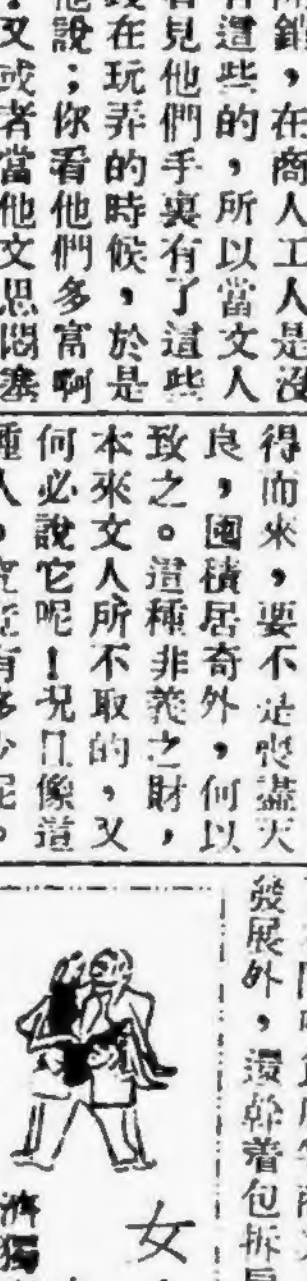 銷，在商人工人是沒
有這些的，所以當文人
看見他們手裏有了這些
錢在玩弄的時候，於是
他說；你看他們多富啊
！又或者當他文思悶塞
得而來，要不是喪盡天
良，國積居奇外，何以
致之。這種非義之財，
本來文人所不取的，又
何必說它呢！況且像這
種人，究竟有多少呢。
發展外，還幹着包拆
女
濟獨